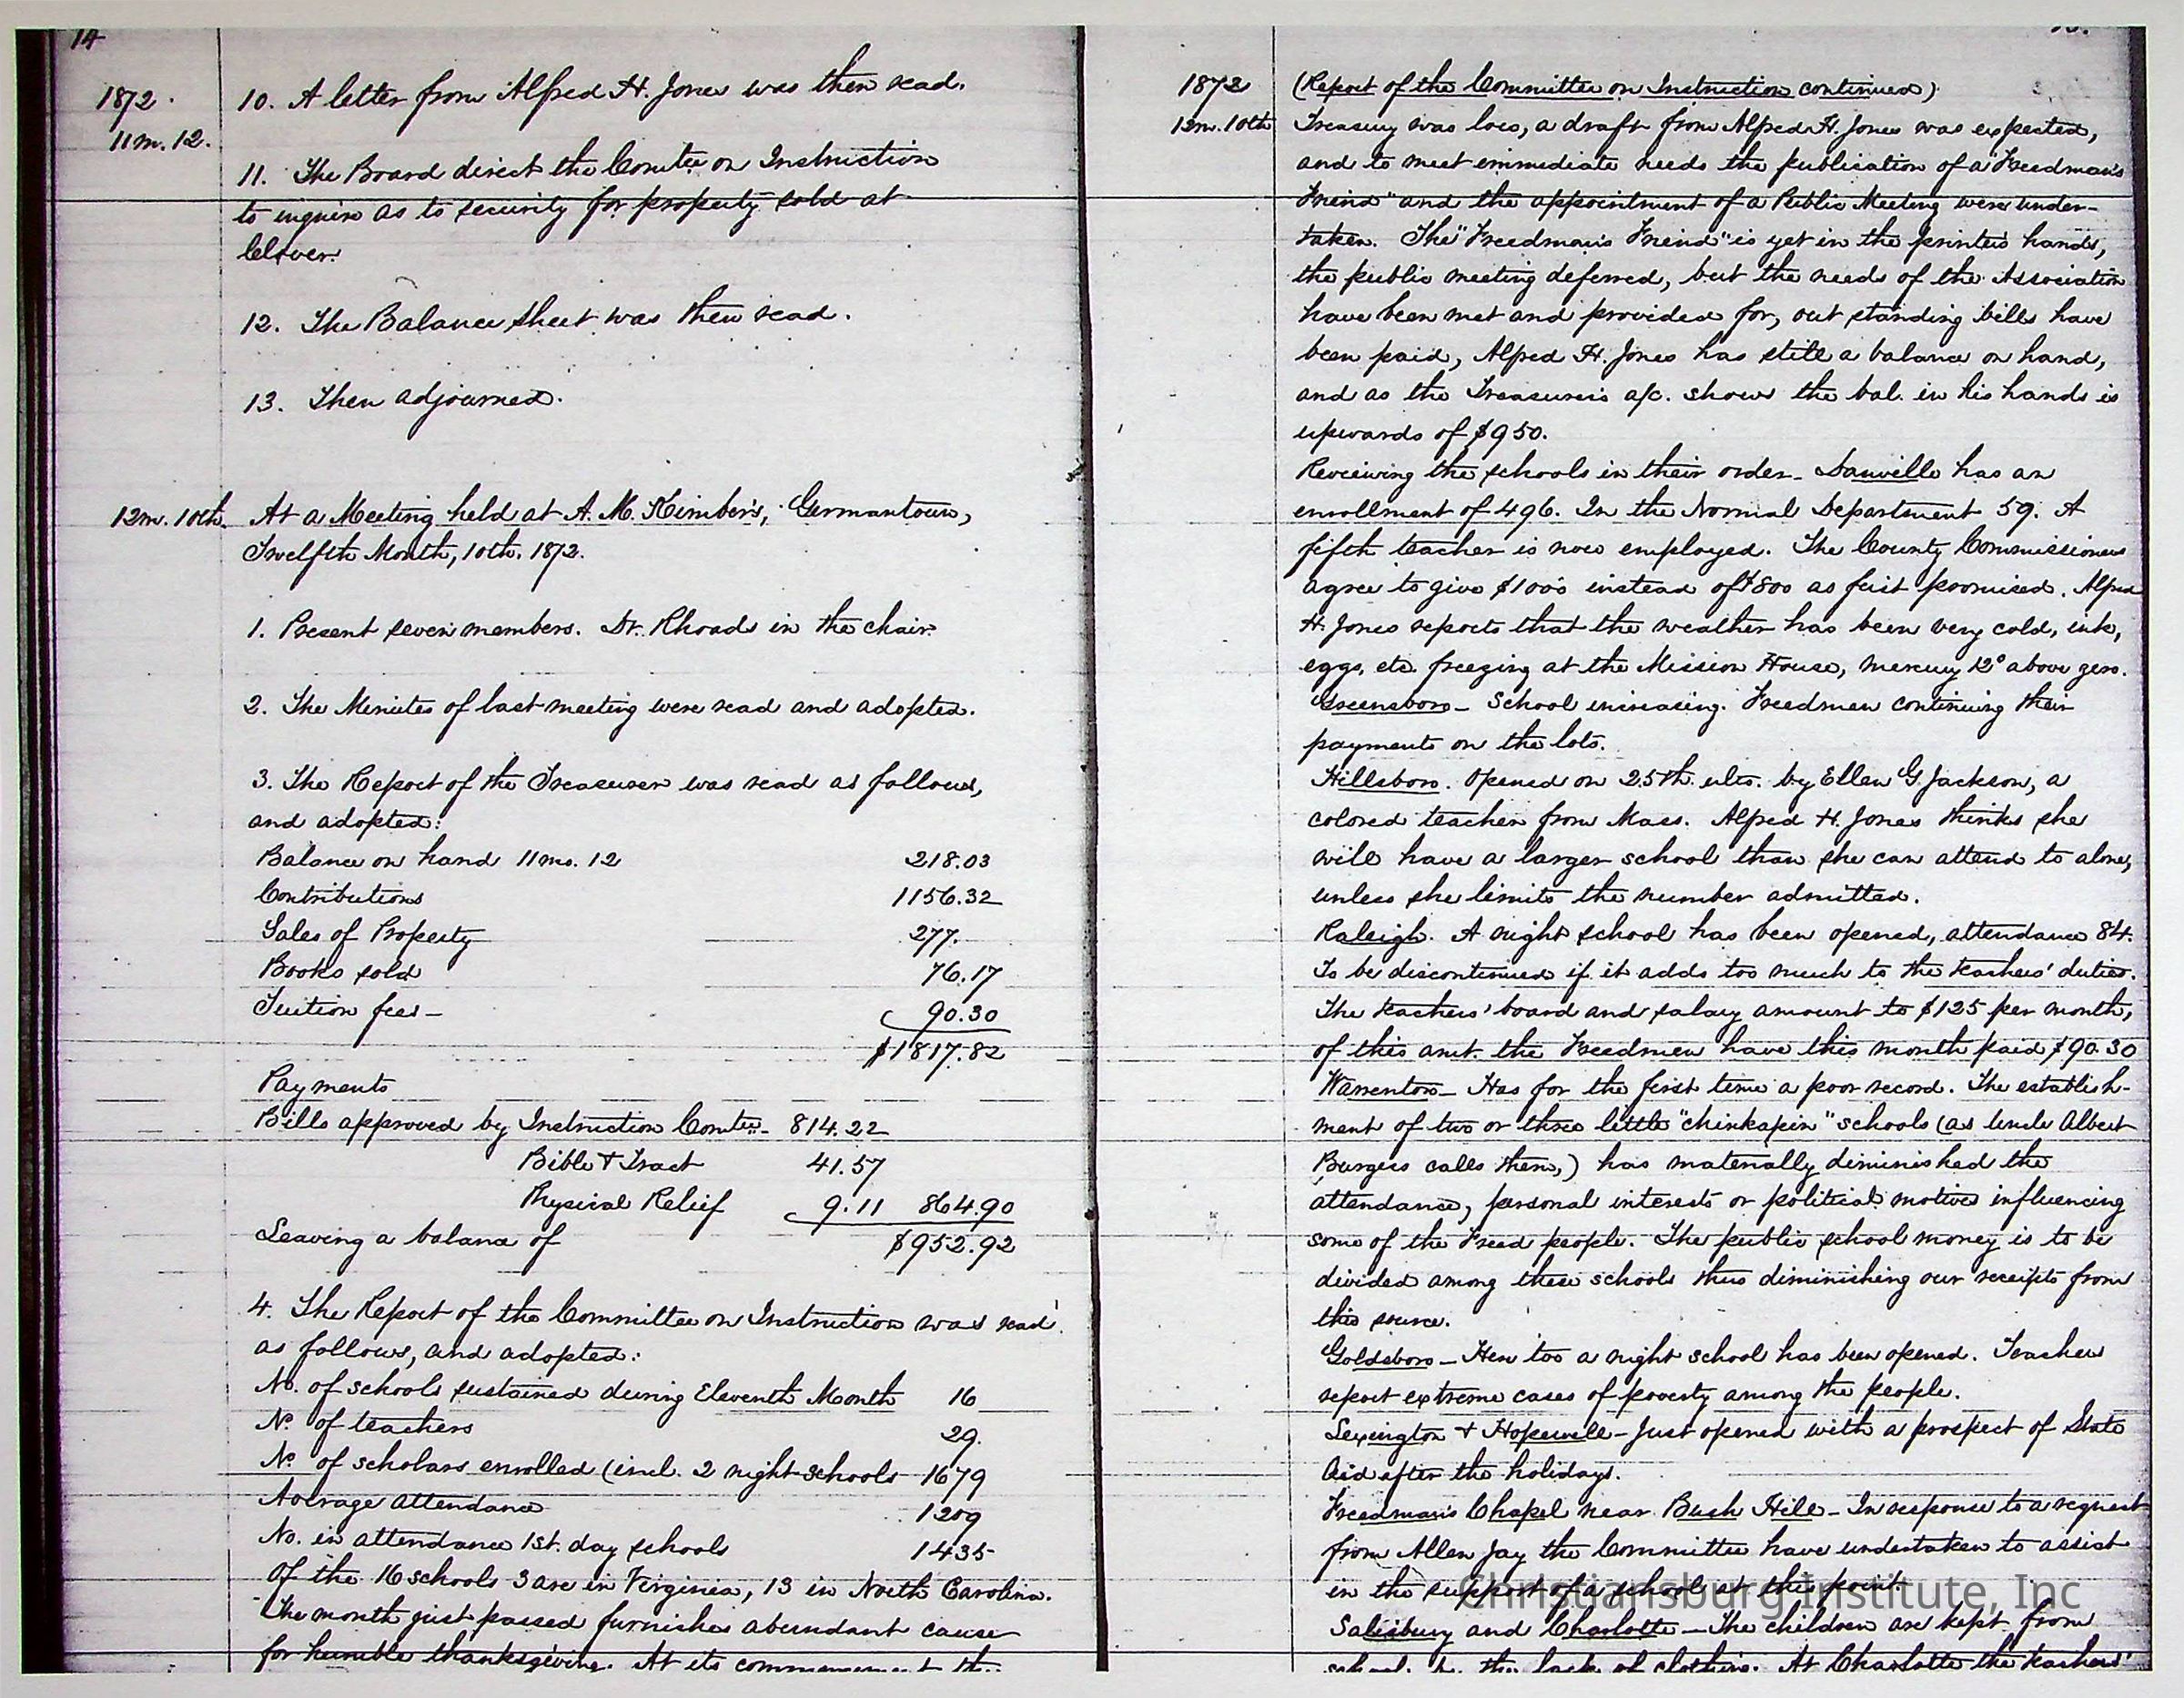 14
1872.
11m. 12.
10. A letter from Alfred H. Jones was then read.
11. The Board direct the Comtee on Instruction
to inquire as to security for property sold at
Clover.
12. The Balance sheet was then read.
13. Then adjourned.
12m. 10th.
At a Meeting held at A. M. Kimber's, Germantown,
Twelfth Month, 10th. 1872.
1. Present seven members. Dr. Rhoads in the chair.
2. The Minutes of last meeting were read and adopted.
3. The Report of the Treasurer was read as follows,
and adopted:
Balance on hand 11mo. 12 218.03
Contributions 1156.32
Sales of Property 277.
Books sold 76.17
Tuition fees— 90.30
$1817.82
Payments
Bills approved by Instruction Comtee. 814.22
Bible & Tract 41.57
Physical Relief 9.11 864.90
Leaving a balance of $952.92
4. The Report of the Committee on Instruction was read
as follows, and adopted:
No. of schools sustained during Eleventh Month 16
No. of teachers 29.
No. of scholars enrolled (incl. 2 night schools 1679
Average attendance 1209
No. in attendance 1st. day schools 1435
Of the 16 schools 3 are in Virginia, 13 in North Carolina.
The month just passed furnishes abundant cause
for humble thanksgiving. At its commencement the
1872
12m. 10th
(Report of the Committee on Instruction continued)
Treasury was low, a draft from Alfred H. Jones was expected,
and to meet immediate needs the publication of a "Freedman's
Friend" and the appointment of a Public Meeting were under-
taken. The "Freedman's Friend" is yet in the printer's hands,
the public meeting deferred, but the needs of the Association
have been met and provided for, out standing bills have
been paid, Alfred H. Jones has still a balance on hand,
and as the Treasurer's a/c. shows the bal. in his hands is
upwards of $950.
Reviewing the schools in their order. Danville has an
enrollment of 496. In the Normal Department 59. A
fifth teacher is now employed. The County Commissioners
agree to give $1000 instead of $800 as first promised. Alfred
H. Jones reports that the weather has been very cold, ink,
eggs, etc. freezing at the Mission House, mercury 12° above zero.
Greensboro— School increasing. Freedmen continuing their
payments on the lots.
Hillsboro. Opened on 25th. ulto. by Ellen G. Jackson, a
colored teacher from Mass. Alfred H. Jones thinks she
will have a larger school than she can attend to alone,
unless she limits the number admitted.
Raleigh. A night school has been opened, attendance 84.
To be discontinued if it adds too much to the teachers' duties.
The teachers' board and salary amount to $125 per month,
of this amt. the Freedmen have this month paid $90.30
Warrenton— Has for the first time a poor record. The establish-
ment of two or three little "chinkapin" schools (as Uncle Albert
Burgess calls them,) has materially diminished the
attendance, personal interests or political motives influencing
some of the Freed people. The public school money is to be
divided among these schools thus diminishing our receipts from
this source.
Goldsboro— Here too a night school has been opened. Teachers
report extreme cases of poverty among the people.
Lexington & Hopewell— Just opened with a prospect of State
Aid after the holidays.
Freedman's Chapel near Bush Hill— In response to a request
from Allen Jay the Committee have undertaken to assist
in the support of a school at this point.
Salisbury and Charlotte— The children are kept from
school by the lack of clothing. At Charlotte the teachers'
Christiansburg Institute, Inc